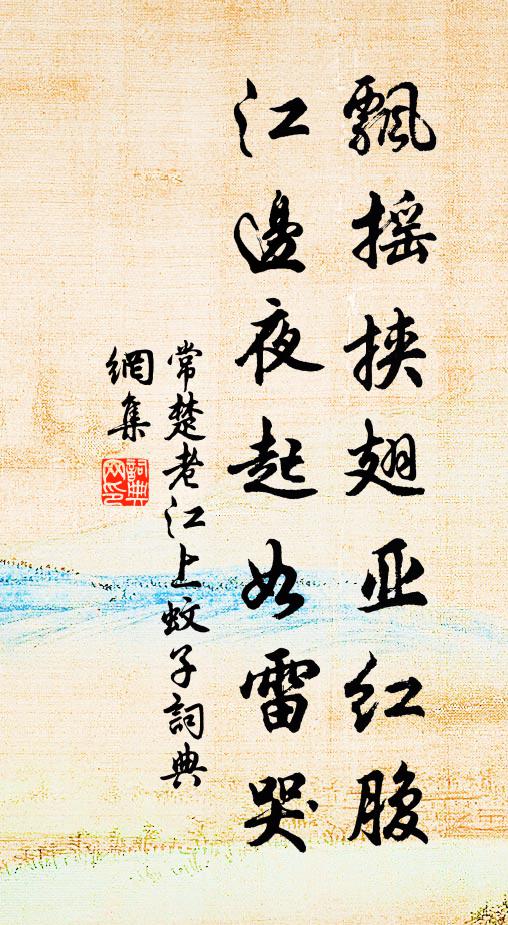 飄摇挟翅亚红腹
江邊夜起如雷哭
常楚老江上蚊子詞典
網集
詞典
网印